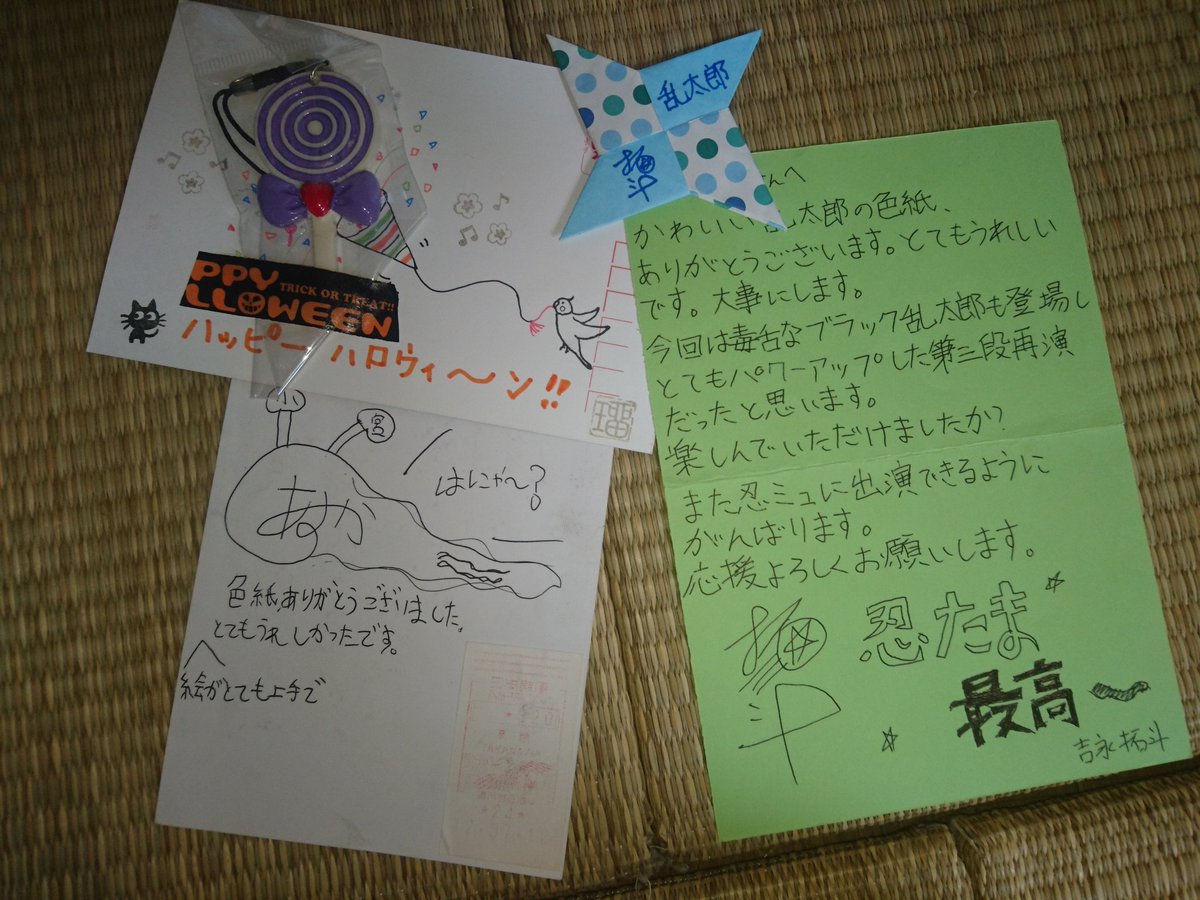 PPY
TRICK OR TREAT!!
LLOWEEN
ハッピー ハロウィ〜ン!!
乱太郎
拓斗
小
宮
あすか
はにゃ〜?
色紙ありがとうございました。
とてもうれしかったです。
絵がとても上手で
さんへ
かわいい乱太郎の色紙、
ありがとうございます。とてもうれしい
です。大事にします。
今回は毒舌なブラック乱太郎も登場し
とてもパワーアップした第三段再演
だったと思います。
楽しんでいただけましたか?
また忍ミュに出演できるように
がんばります。
応援よろしくお願いします。
拓斗
忍たま
最高〜
吉永拓斗